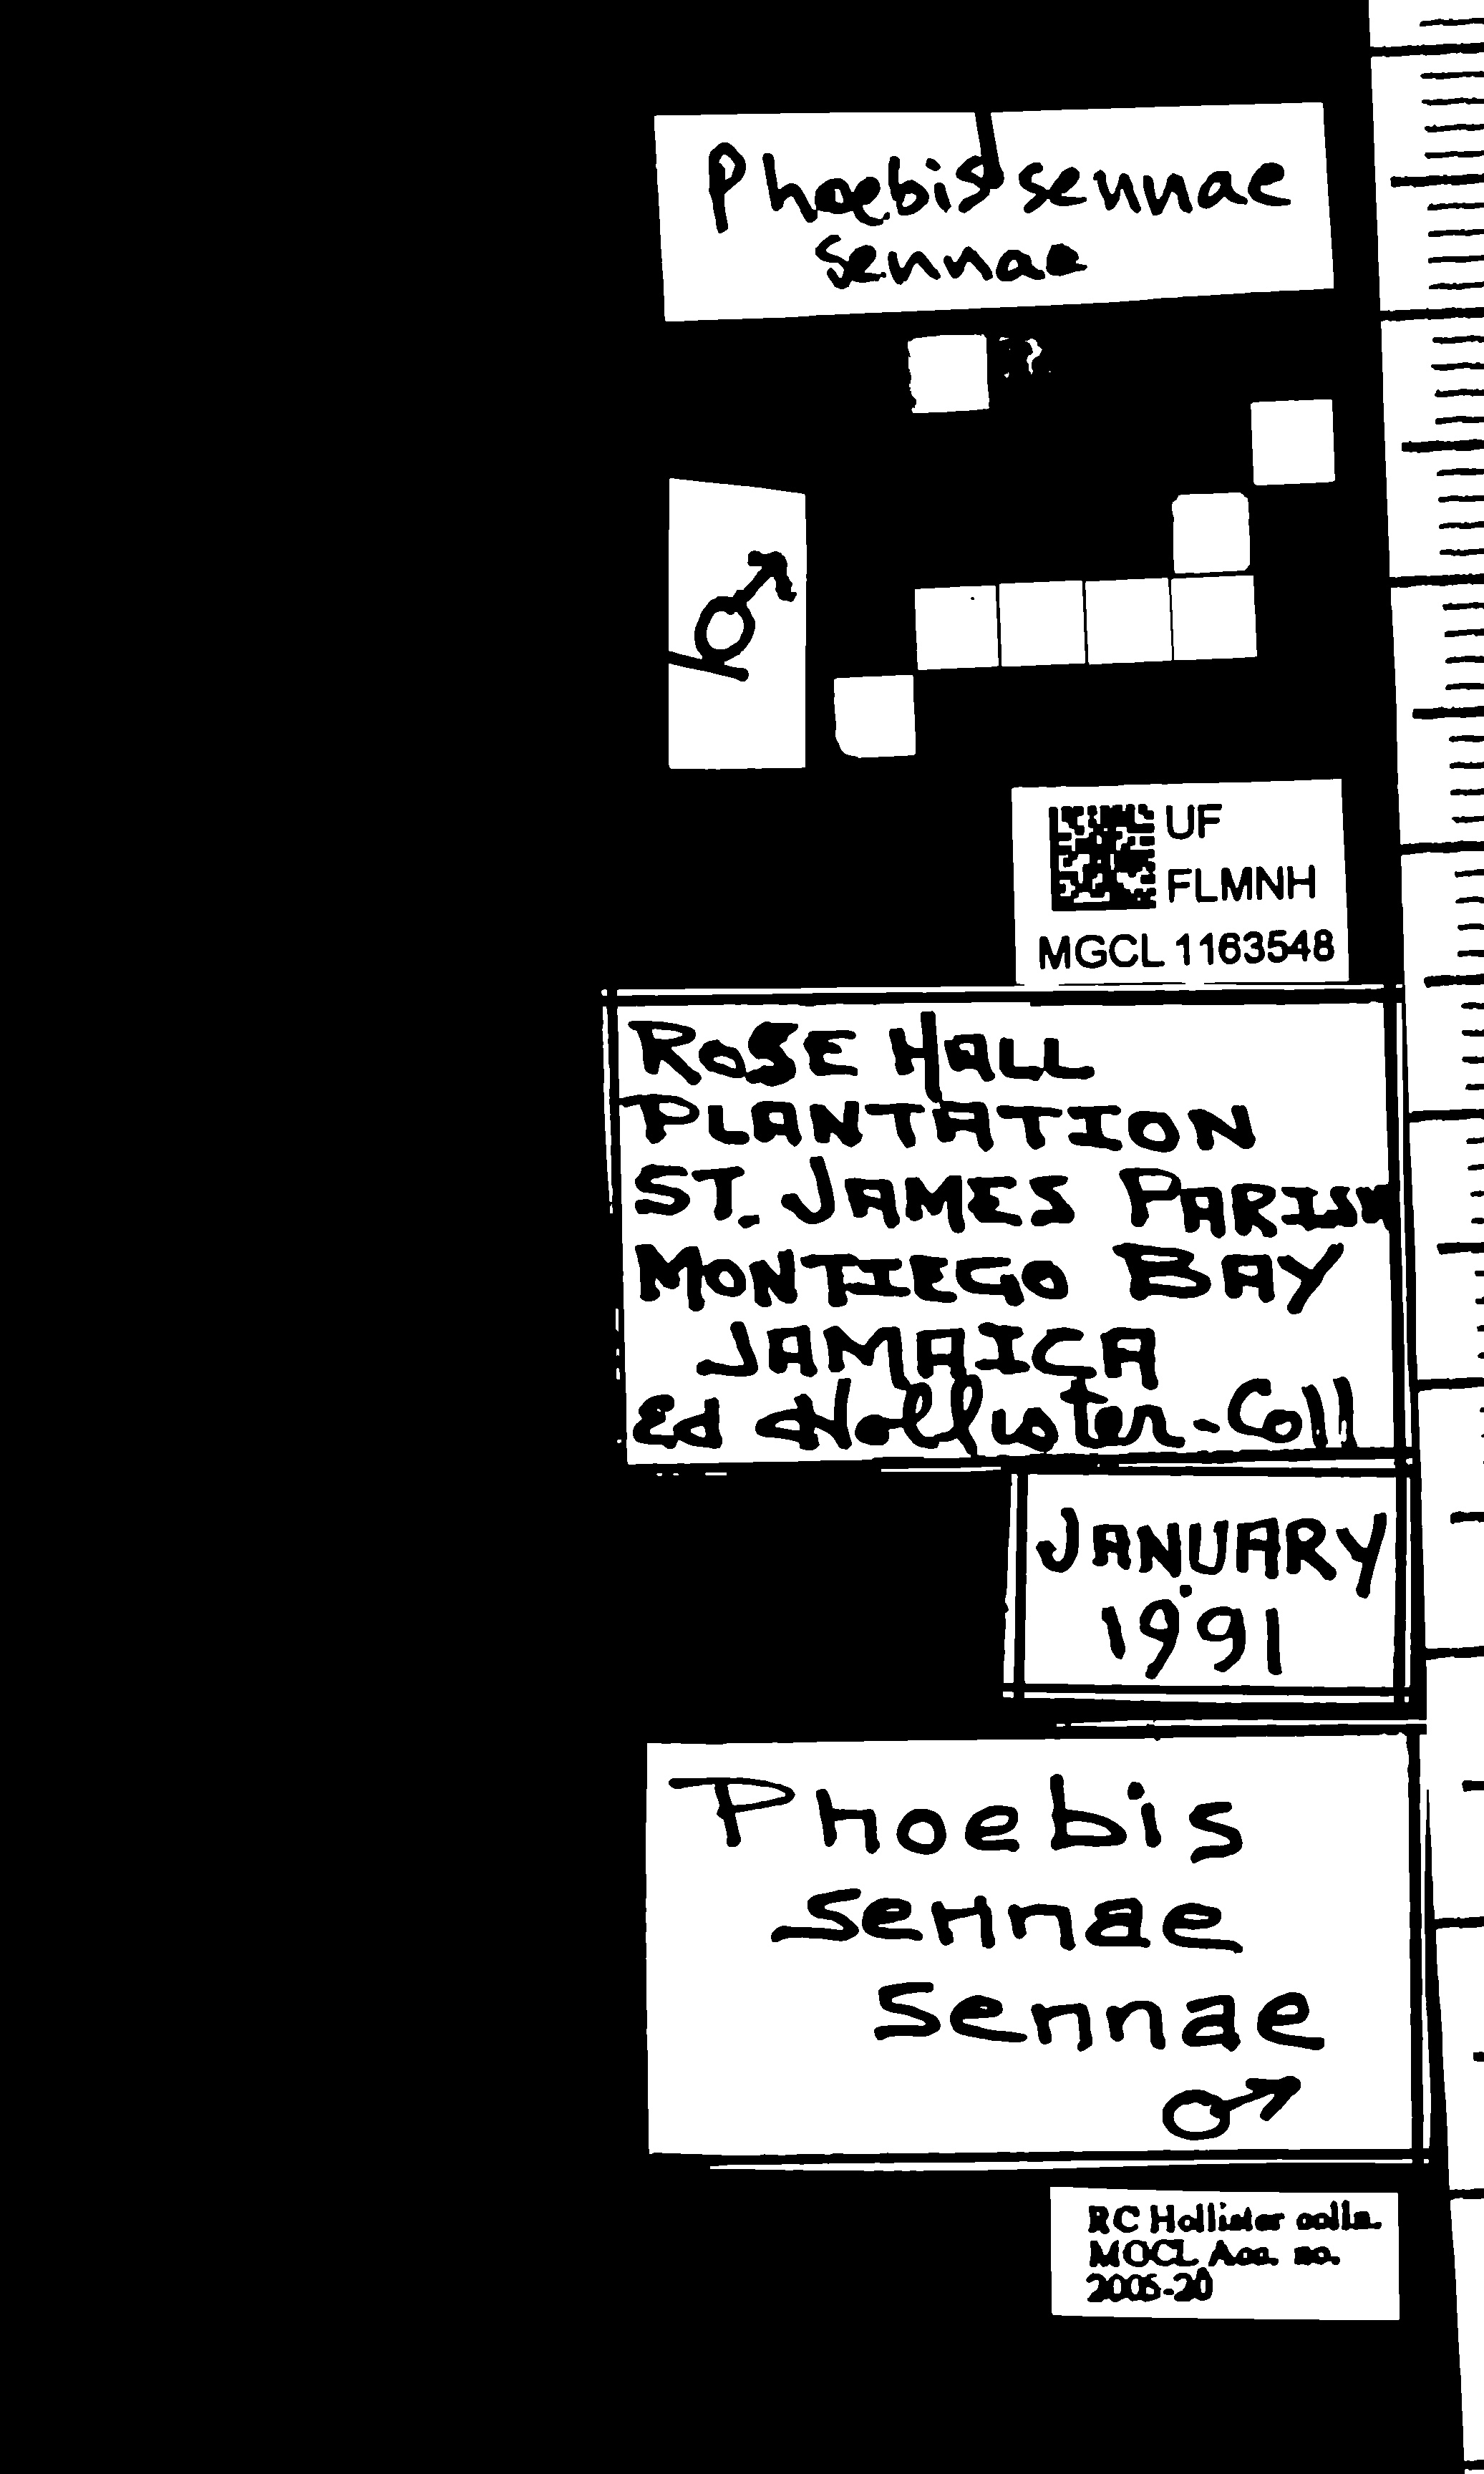 Phoebis sennae
sennae
♂
UF
FLMNH
MGCL 1163548
ROSE HALL
PLANTATION
ST. JAMES PARISH
MONTIEGO BAY
JAMAICA
Ed Hollister-Coll
JANUARY
1991
Phoebis
sennae
sennae
♂
RC Hollister colln.
MGCL Acc. no.
2005-20